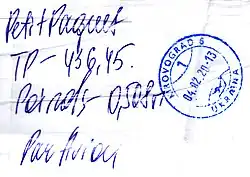 Petit Paquet
TP - 436,45.
Poids - 0,508кг
Par Avion
KIROVOGRAD 6
1
04.02.20-13
UKRAINA